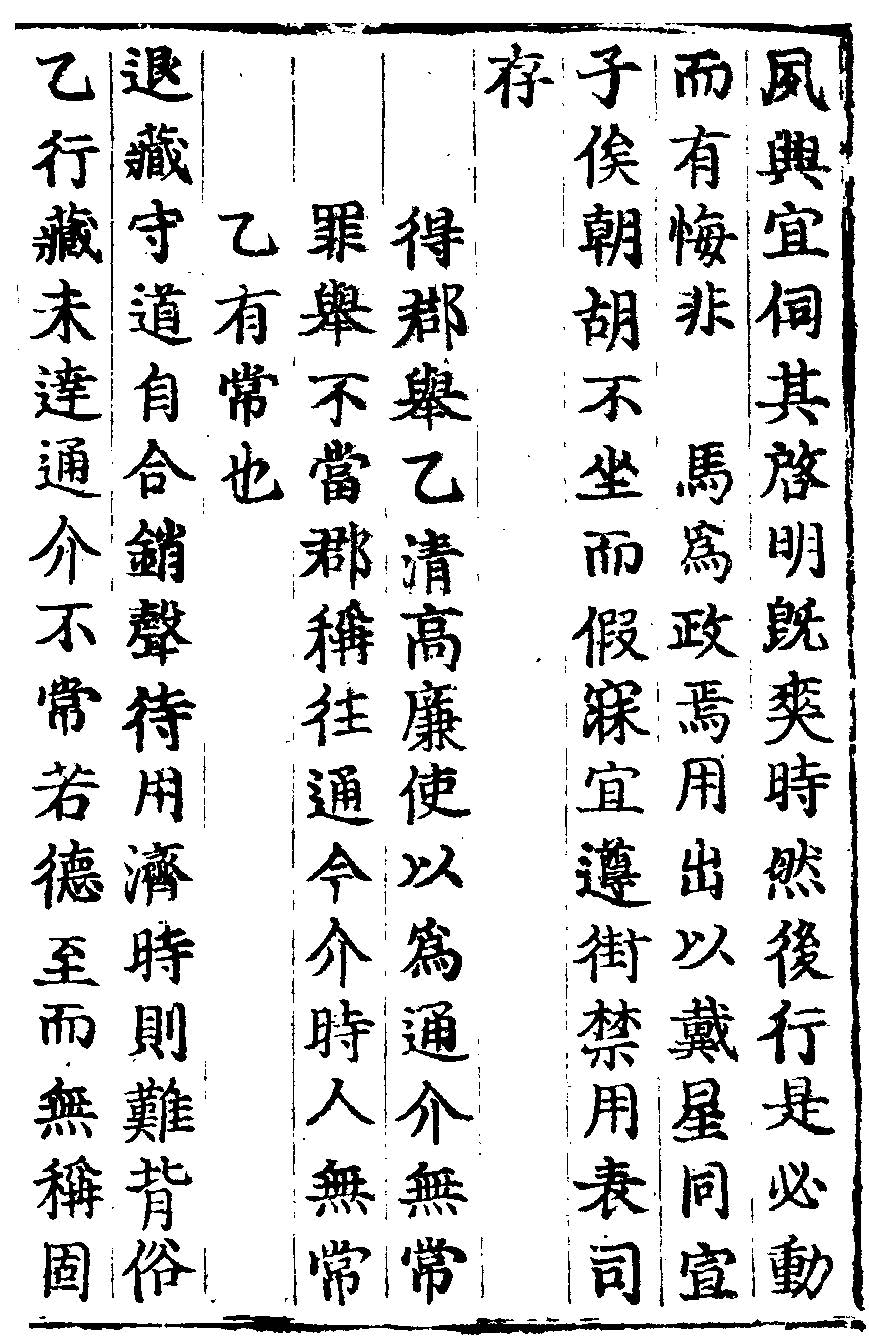 夙興宜伺其啓明旣爽時然後行是必動
而有悔非　馬爲政焉用出以戴星同宣
子俟朝胡不坐而假寐宜遵街禁用表司
存
得郡舉乙清高廉使以爲通介無常
罪舉不當郡稱往通今介時人無常
乙有常也
退藏守道自合銷聲待用濟時則難背俗
乙行藏未達通介不常若德至而無稱固